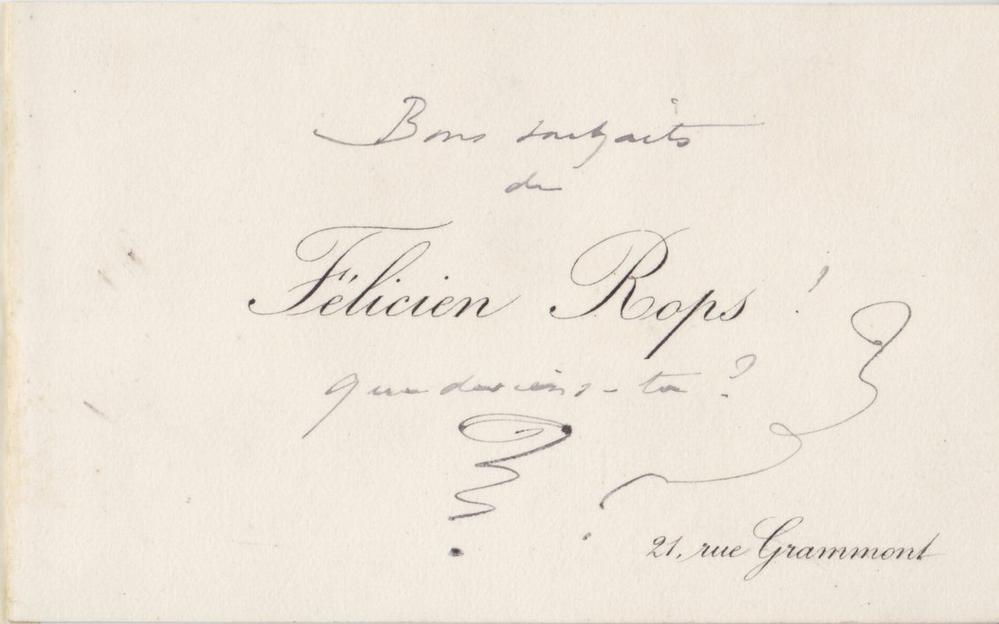 Bons souhaits
de
Félicien Rops !
que deviens-tu ?
21, rue Grammont